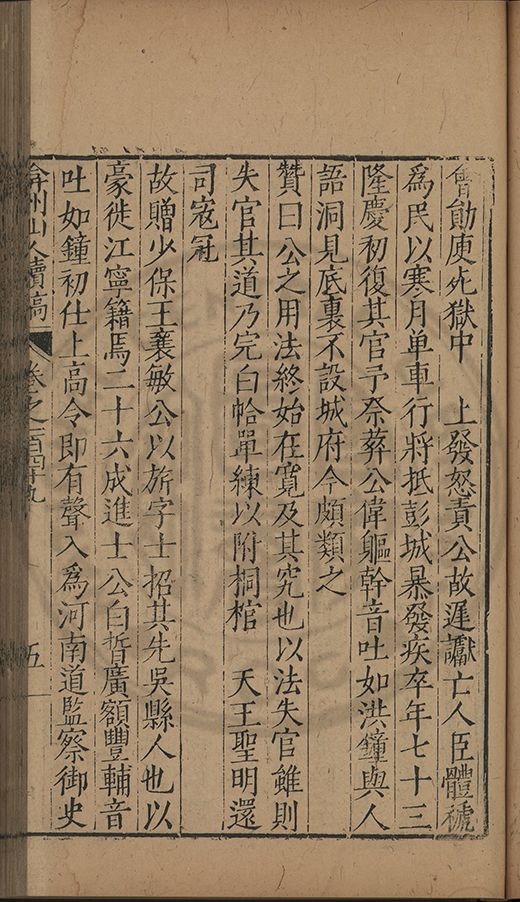 會勛庾死獄中　上發怒責公故遲讞亡人臣體褫
為民以寒月单車行將抵彭城暴發疾卒年七十三
隆慶初復其官予祭葬公偉軀幹音吐如洪鐘與人
語洞見底裏不設城府今頗類之
贊曰公之用法終始在寬及其究也以法失官雖則
失官其道乃完白帢單練以附桐棺　天王聖明還
司寇冠
故贈少保王襄敏公以旂字士招其先吳縣人也以
豪徙江寧籍焉二十六成進士公白晳廣額豐輔音
吐如鐘初仕上高令即有聲入為河南道監察御史
弇州山人續稿　卷之一百四十九　五